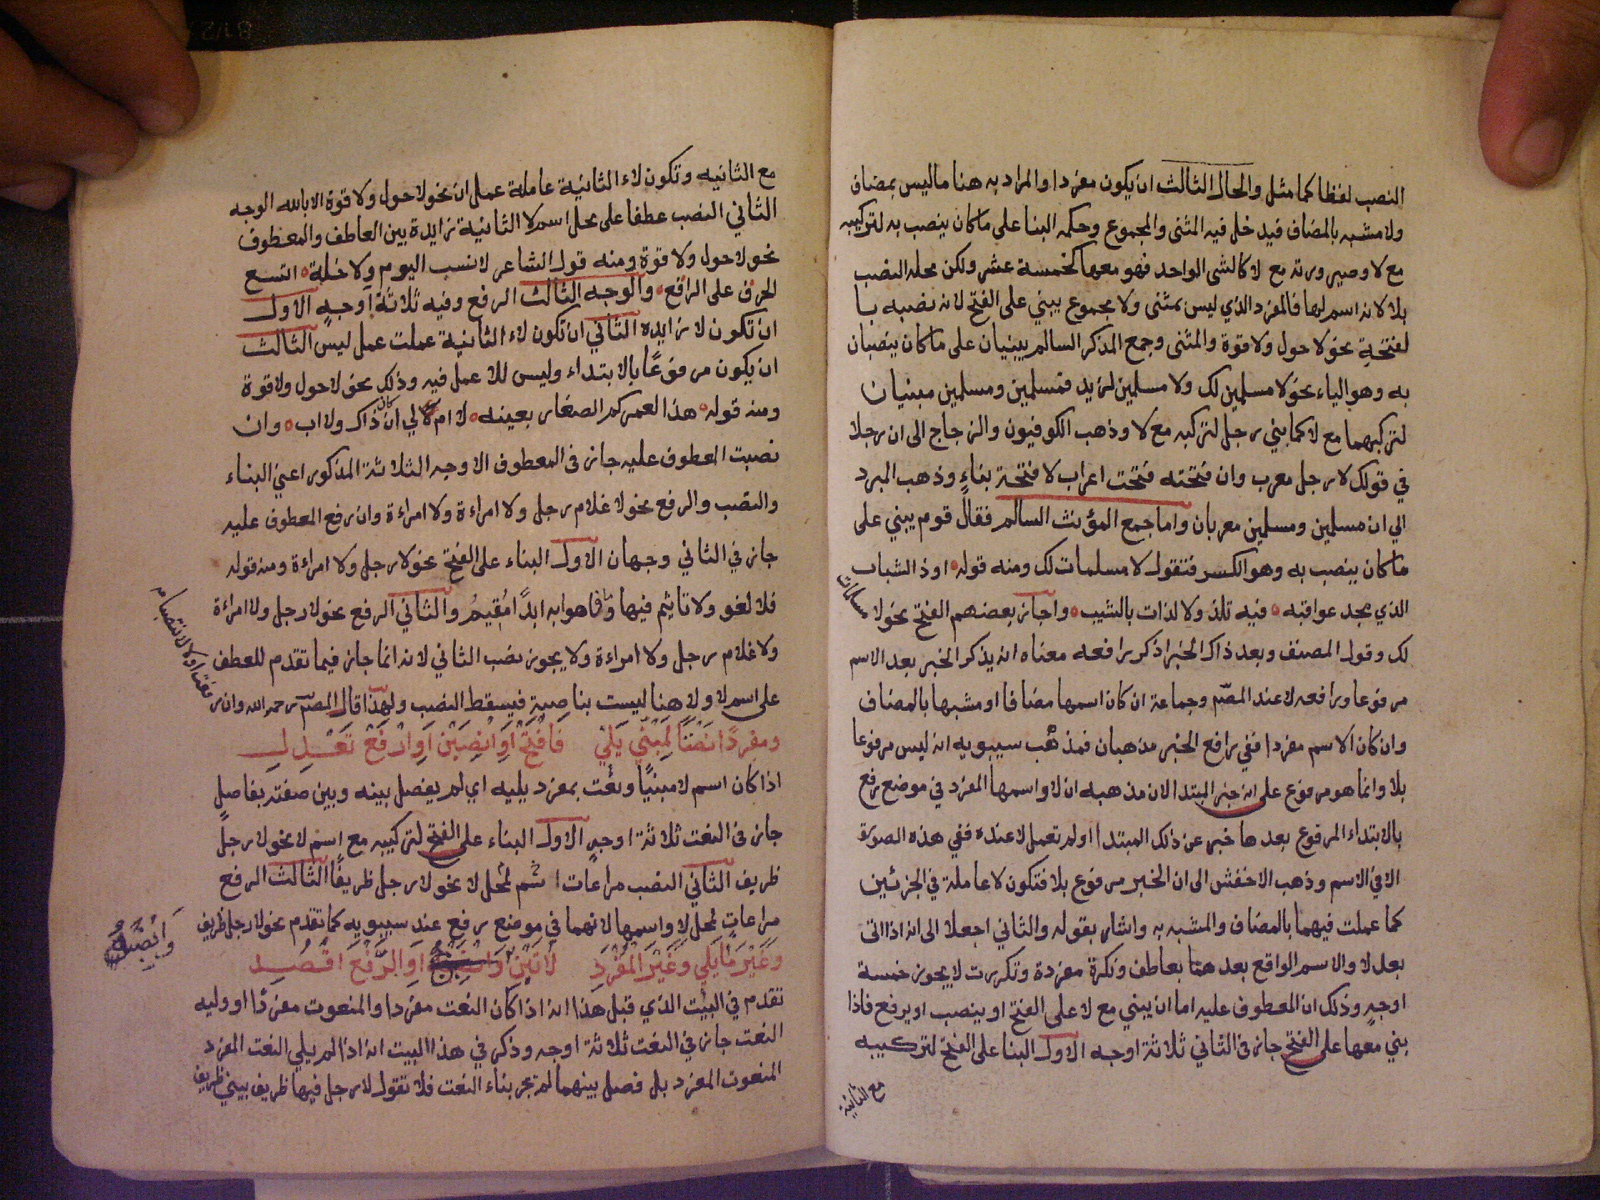 النصب لفظا كما مثل والحال الثالث ان يكون مفردا والمراد به هنا ما ليس بمضاف
ولا مشبه بالمضاف فيدخل فيه المثنى والمجموع وحكمه البنا على ما كان ينصب به لتركيبه
مع لا وصيرورته مع لا كالشى الواحد فهو معها كخمسة عشر ولكن محله النصب
بلا لانه اسم لها فالمفرد الذي ليس بمثنى ولا مجموع يبني على الفتح لانه نصبه با
لفتحة نحو لا حول ولا قوة والمثنى وجمع المذكر السالم يبنيان على ما كان ينصبان
به وهو الياء نحو لا مسلمين لك ولا مسلمين لزيد فمسلمين ومسلمين مبنيان
لتركبهما مع لا كما بني رجل لتركبه مع لا وذهب الكوفيون والزجاج الى ان رجلا
في قولك لا رجل معرب وان فتحته فتحت اعراب لا فتحة بناء وذهب المبرد
الي ان مسلمين ومسلمين معربان واما جمع المؤنث السالم فقال قوم يبني على
ما كان ينصب به وهو الكسر فتقول لا مسلمات لك ومنه قوله اوذ الشباب
الذي مجد عواقبه فيه تلذ ولا لذات بالشيب واجاز بعضهم الفتح نحو لا مسلمات
لك وقول المصنف وبعد ذاك الخبر اذكر رافعه معناه انه يذكر الخبر بعد الاسم
مرفوعا ورافعه لا عند المصّ وجماعة ان كان اسمها مضافا او مشبها بالمضاف
وان كان الاسم مفردا ففي رافع الخبر مذهبان فمذهب سيبويه انه ليس مرفوعا
بلا وانما هو مرفوع على انه خبر المبتدا لان مذهبه ان لا واسمها المفرد في موضع رفع
بالابتداء المرفوع بعدها خبر عن ذلك المبتدا اولم تعمل لا عنده ففي هذه الصورة
الا في الاسم وذهب الاخفش الى ان الخبر مرفوع بلا فتكون لا عاملة في الجزئين
كما عملت فيهما بالمضاف والمشبه به واشار بقوله والثاني اجعلا الى انه اذا اتى
بعد لا والاسم الواقع بعد هما بعاطف ونكرة مفردة وتكررت لا يجوز خمسة
اوجه وذلك ان المعطوف عليه اما ان يبني مع لا على الفتح او ينصب او يرفع فاذا
بني معها على الفتح جاز في الثاني ثلاثة اوجه الاول البنا على الفتح لتركيبه
مع الثانية
مع الثانيه وتكون لاء الثانية عاملة عمل ان نحو لا حول ولا قوة الا بالله الوجه
الثاني النصب عطفا على محل اسم لا الثانية زايدة بين العاطف والمعطوف
نحو لا حول ولا قوة ومنه قول الشاعر لا نسب اليوم ولا خلة اتسع
الخرق على الراقع والوجه الثالث الرفع وفيه ثلاثة اوجه الاول
ان تكون لا زايده الثاني ان تكون لاء الثانية عملت عمل ليس الثالث
ان يكون مرفوعا بالابتداء وليس للا عمل فيه وذلك نحو لا حول ولا قوة
ومنه قوله هذا لعمركم الصغار بعينه لا ام لي ان كان ذاك ولا اب وان
نصبت المعطوف عليه جاز في المعطوف الاوجه الثلاثة المذكور اعني البناء
والنصب والرفع نحو لا غلام رجل ولا امراءة ولا امراءة وان رفع المعطوف عليه
جاز في الثاني وجهان الاول البناء على الفتح نحو لا رجل ولا امراءة ومنه قوله
فلا لغو ولا تاثيم فيها وما فاهوا به ابدًا مُقيمُ والثاني الرفع نحو لا رجل ولا امراءة
ولا غلام رجل ولا امراءة ولا يجوز نصب الثاني لانه انما جاز فيما تقدم للعطف
على اسم لا ولا هنا ليست بناصبة فيسقط النصب ولهذا قال المصّ رحمه الله وان ر
فعت اولا لا تنصبا م
ومفردًا نَعْتًا لِمَبْنِيّ يَلِي فَافْتَحْ اَوِ انْصِبَنْ اَوِ ارْفَعْ تَعْدِلِ
اذا كان اسم لا مبنيًا ونُعت بمفرد يليه اي لم يفصل بينه وبين صفته بفاصل
جاز في النعت ثلاثة اوجه الاول البناء على الفتح لتركيبه مع اسم لا نحو لا رجل
ظريف الثاني النصب مراعات اسم لمحل لا نحو لا رجل ظريفًا الثالث الرفع
مراعات لمحل لا واسمها لانهما في موضع رفع عند سيبويه كما تقدم نحو لا رجل ظريف
وَغَيْرَ مَا يَلِي وَغَيْرَ المُفْرَدِ لا تَبْنِ اَوِ الرَّفْعَ اقْصِدِ
وَانْصِبْهُ
تقدم في البيت الذي قبل هذا انه اذا كان النعت مفردا والمنعوت مفردًا او وليه
النعت جاز في النعت ثلاثة اوجه وذكر في هذا البيت انه اذا لم يلي النعت المفرد
المنعوت المفرد بل فصل بينهما لم تجز بناء النعت فلا تقول لا رجل فيها ظريف ببني ظريف